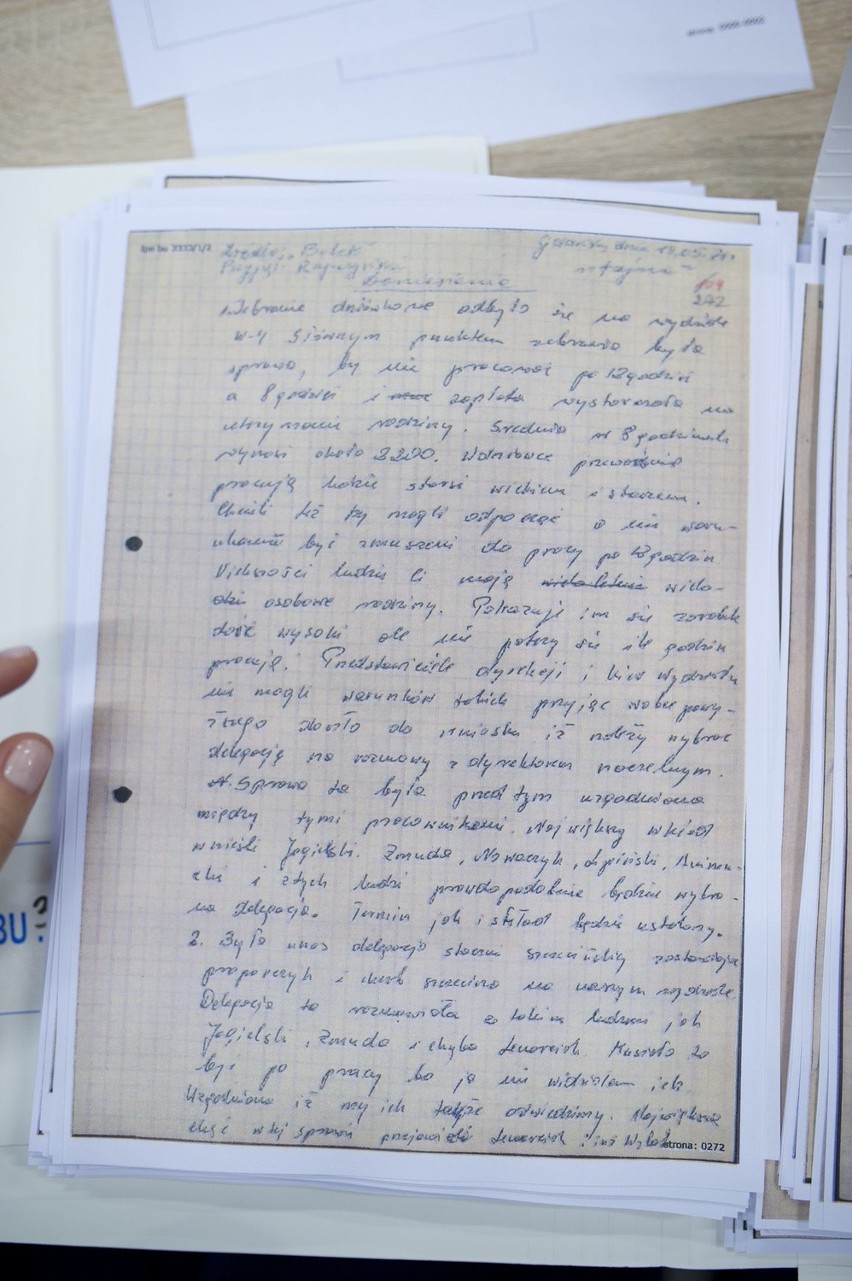 strona: 0000-0002
Ipn bu XXXI/1/2
Źródło: „Bolek" Gdańsk, dnia 19.05.71r.
Przyjął: Rapczyński „Tajne"
Doniesienie
272
1. Zebranie działowe odbyło się na wydziale
W-4 Głównym punktem zebrania była
sprawa, by nie pracować po 12 godzin
a 8 godzin i zapłata wystarczała na
utrzymanie rodziny. Średnia w 8 godzinach
wynosi około 2200.
pracują ludzie starsi wiekiem i stażem.
Chcieli też by mogli odpocząć a nie
być zmuszeni do pracy po 12 godzin
Większości ludzie ci mają wielo-
osobowe rodziny. Pokazuje im się zarobek
dość wysoki ale nie patrzy się ile godzin
pracują. Przedstawiciele dyrekcji i kier wydziału
nie mogli warunków takich przyjąć wobec powy-
ższego doszło do wniosku iż należy wybrać
delegację na rozmowy z dyrektorem naczelnym.
Sprawa ta była przed tym uzgodniona
między tymi pracownikami. Największy wkład
wnieśli Jagielski, Żmuda, Nawaczyk, Lipiński,
i z tych ludzi prawdopodobnie będzie wybra-
na delegacja. Termin jak i skład będzie ustalony.
2. Była u nas delegacja stoczni szczecińskiej zostawiając
proporczyk i herb szczecina na naszym wydziale.
Delegacja ta rozmawiała z takimi ludźmi jak
Jagielski, Żmuda i chyba Lenarciak. Musiało to
być po pracy bo ja nie widziałem ich
Uzgodniono iż my ich także odwiedzimy. Największą
chęć w tej sprawie przejawiał Lenarciak i inż
strona: 0272
BU?